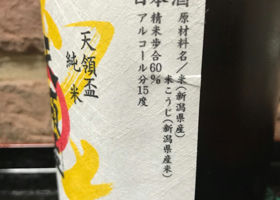 日本酒
原材料名／米（新潟県産）
米こうじ（新潟県産米）
精米歩合60％
アルコール分15度
天領盃
純米